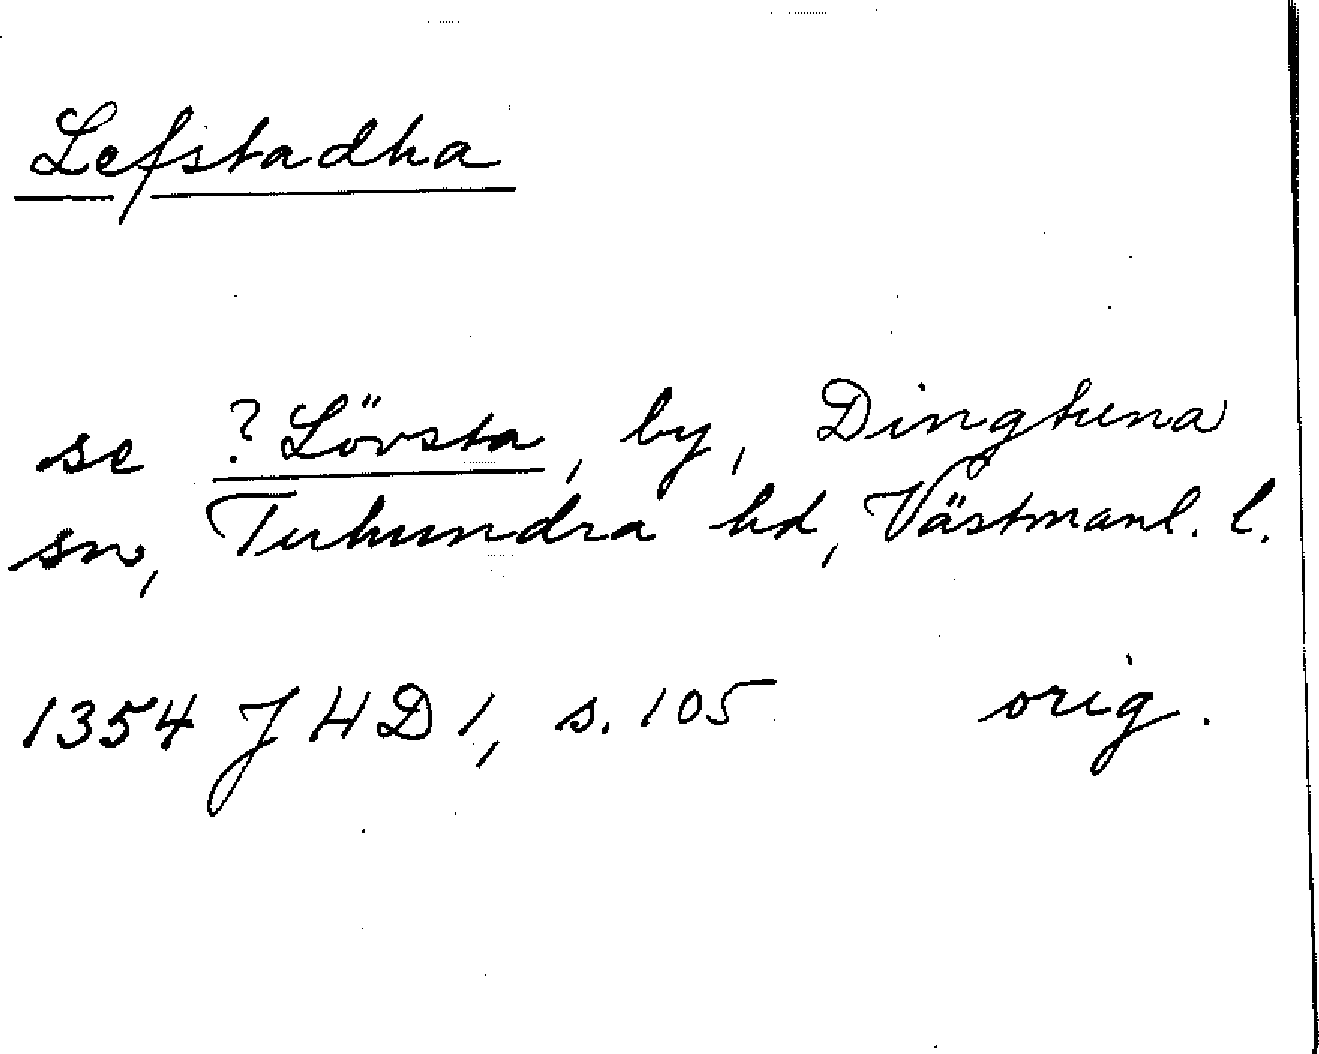 Lefstadha
se ?Lövsta, by, Dingtuna
sn, Tuhundra hd, Västmanl. l.
1354 JHD 1, s. 105 orig.